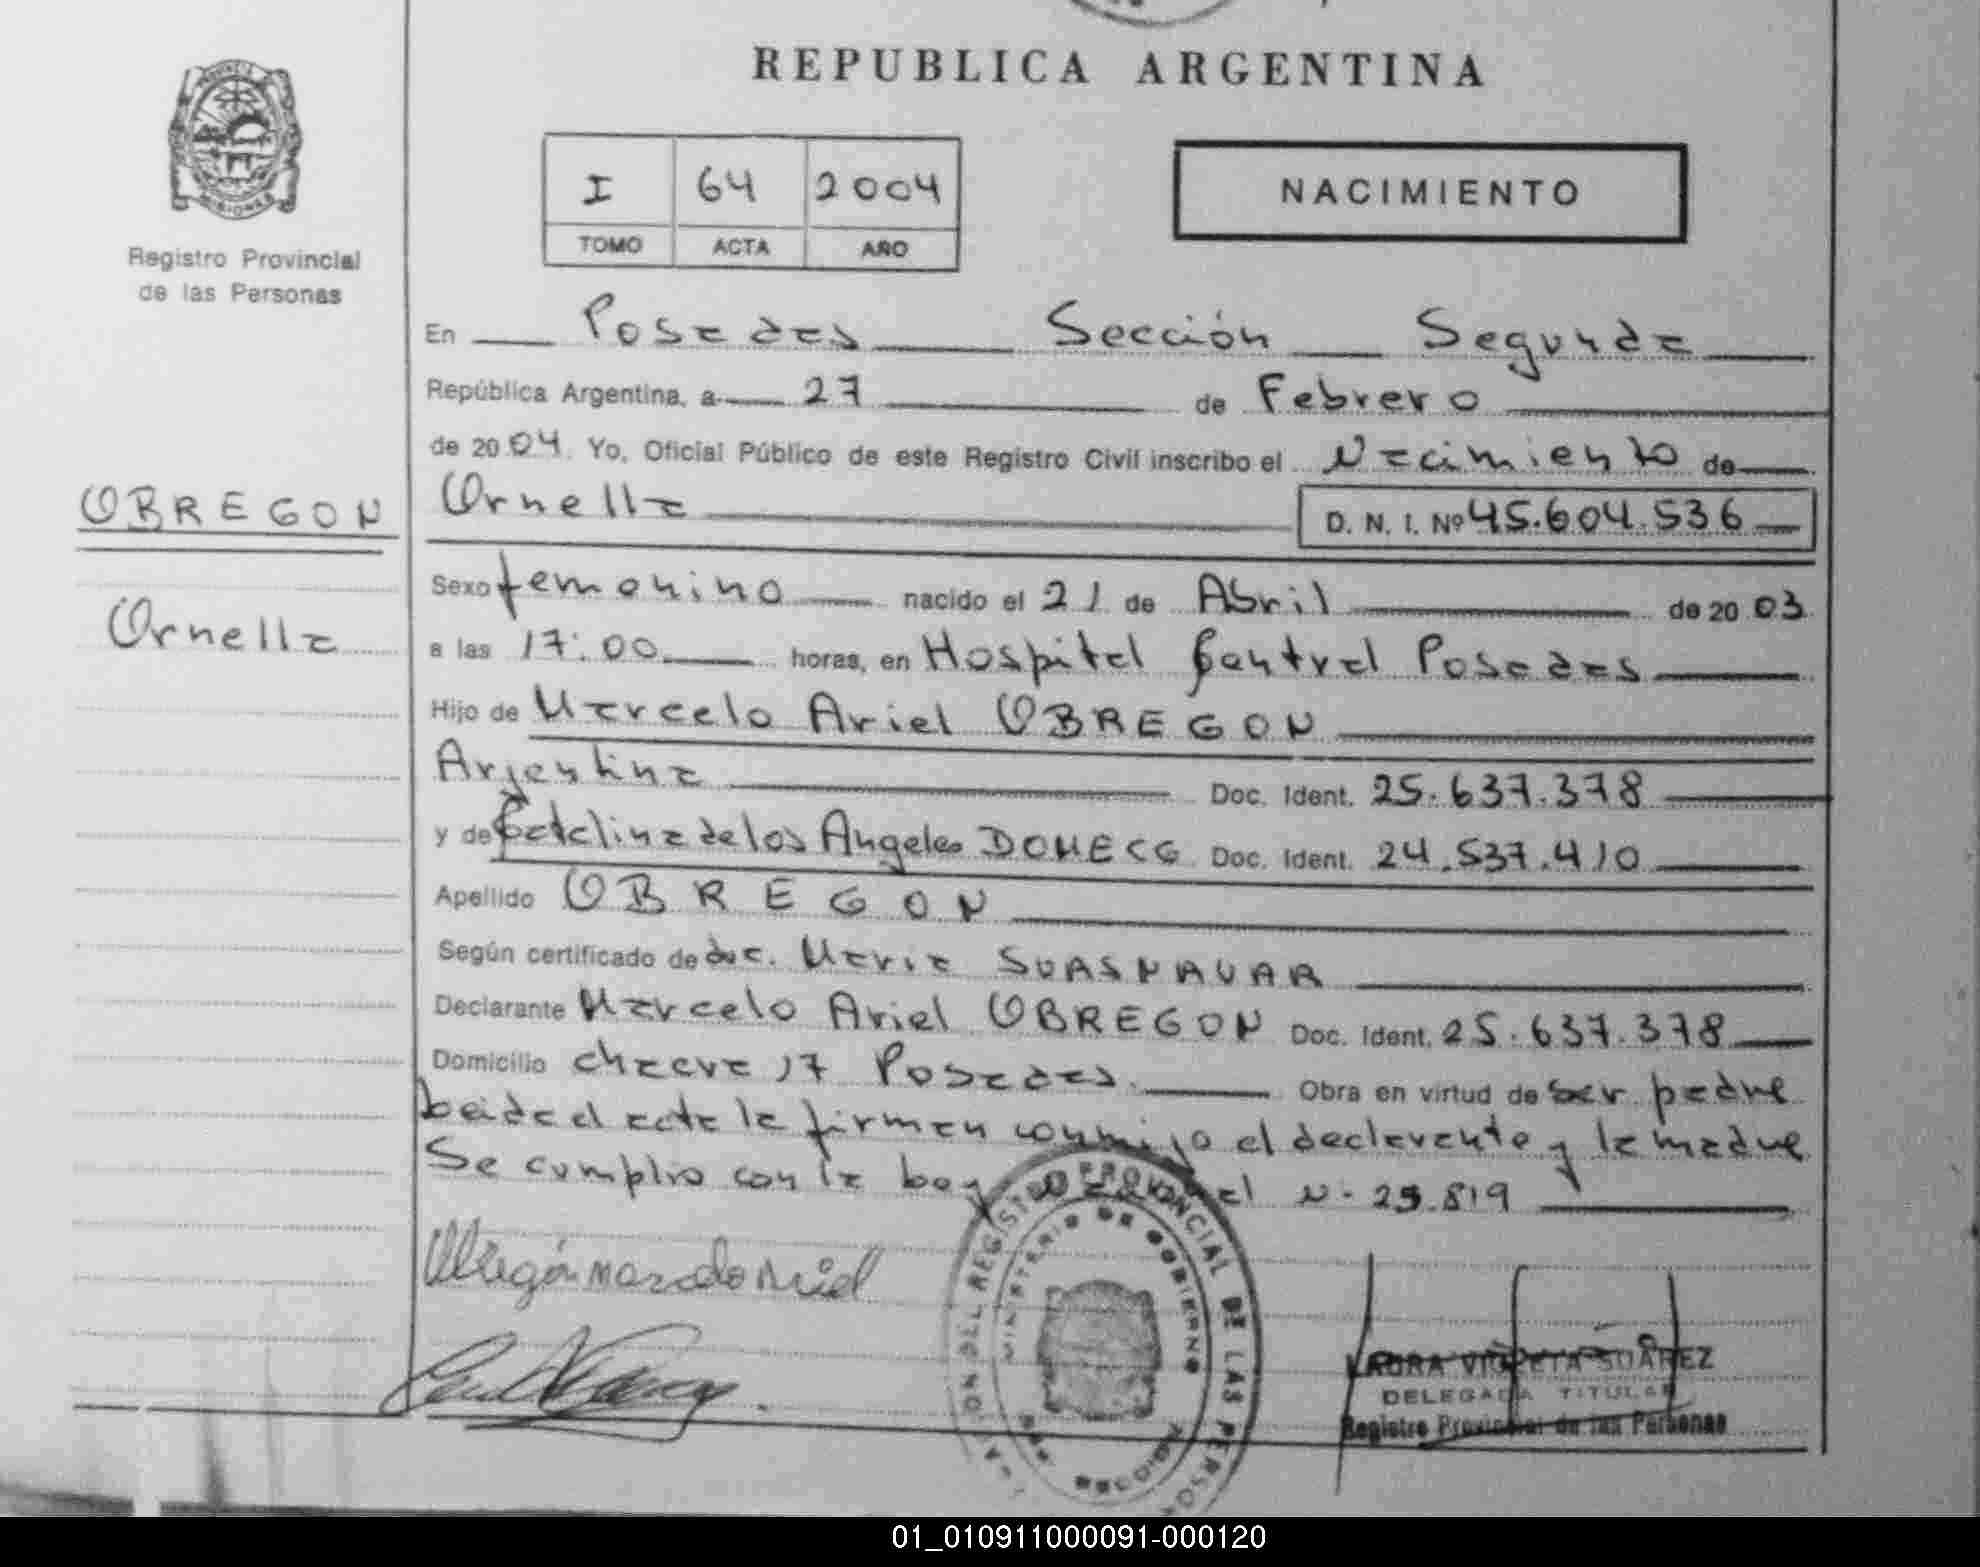 REPUBLICA ARGENTINA
MISIONES
Registro Provincial
de las Personas
I 64 2004
TOMO ACTA AÑO
NACIMIENTO
En Posadas Sección Segunda
República Argentina, a 27 de Febrero
de 2004. Yo, Oficial Público de este Registro Civil inscribo el Nacimiento de
OBREGON
Ornella
Ornella D. N. I. Nº 45.604.536
Sexo femenino nacido el 21 de Abril de 2003
a las 17:00 horas, en Hospital Central Posadas
Hijo de Marcelo Ariel OBREGON
Argentina Doc. Ident. 25.637.378
y de Catalina de los Angeles DOMECG Doc. Ident. 24.537.410
Apellido OBREGON
Según certificado de doc. Maria SUASNAVAR
Declarante Marcelo Ariel OBREGON Doc. Ident. 25.637.378
Domicilio chacra 17 Posadas. Obra en virtud de ser padre
Leida el acta la firman conmigo el declarante y la madre
Se cumplio con la Ley N. 25.819
Obregón Marcelo Ariel
REGISTRO PROVINCIAL DE LAS PERSONAS
MINISTERIO DE GOBIERNO
LAURA VIOLETA SUÁREZ
DELEGADA TITULAR
Registro Provincial de las Personas
01_010911000091-000120